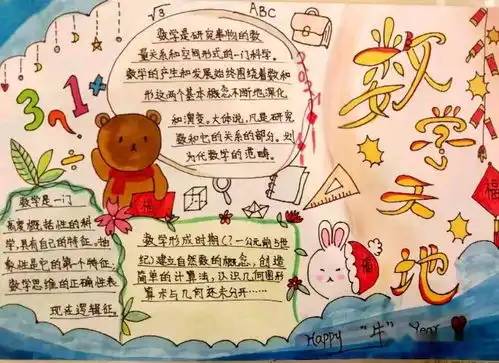 √3
ABC
数学是研究事物的数
量关系和空间形式的一门科学。
数学的产生和发展始终围绕着数和
形这两个基本概念不断地深化
和演变。大体说,凡是研究
数和它的关系的部分,划
为代数学的范畴。
数学天地
3 2 1 +
福
福
福
数学是一门
高度概括性的科
学,具有自己的特征。抽
象性是它的第一个特征,
数学思维的正确性表
现在逻辑征。
数学形成时期(?—公元前5世
纪)建立自然数的概念,创造
简单的计算法,认识几何图形
算术与几何还未分开……
Happy "牛" Year